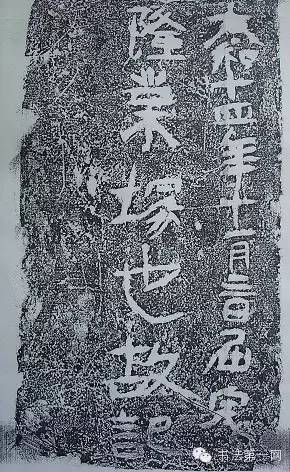 太和十四年十一月三日屈突
隆業塚也故記
书法第一网